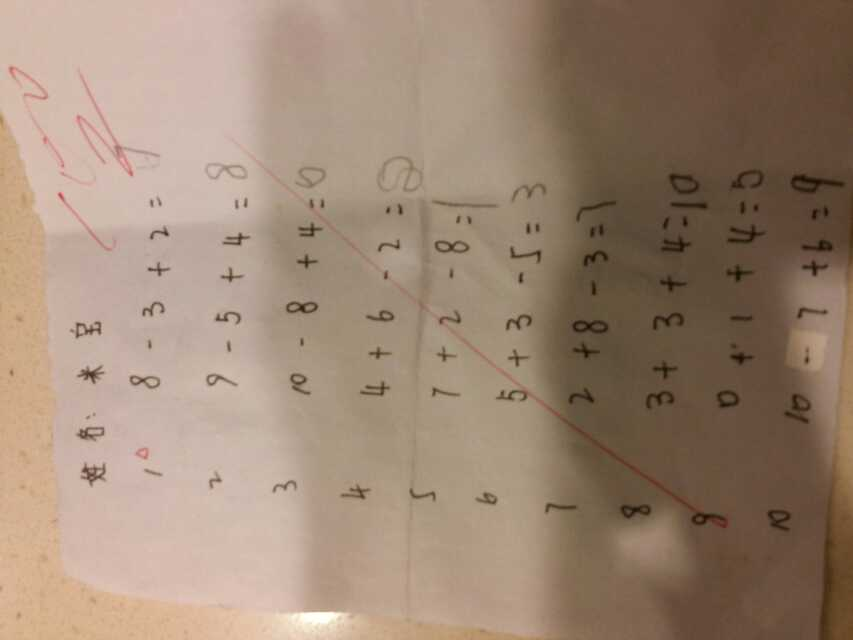 姓名: 米豆
1 8 - 3 + 2 = 7
2 9 - 5 + 4 = 8
3 10 - 8 + 4 = 6
4 4 + 6 - 2 = 8
5 7 + 2 - 8 = 1
6 5 + 3 - 5 = 3
7 2 + 8 - 3 = 7
8 3 + 3 + 4 = 10
9 0 + 1 + 4 = 5
10 10 - 7 + 6 = 9